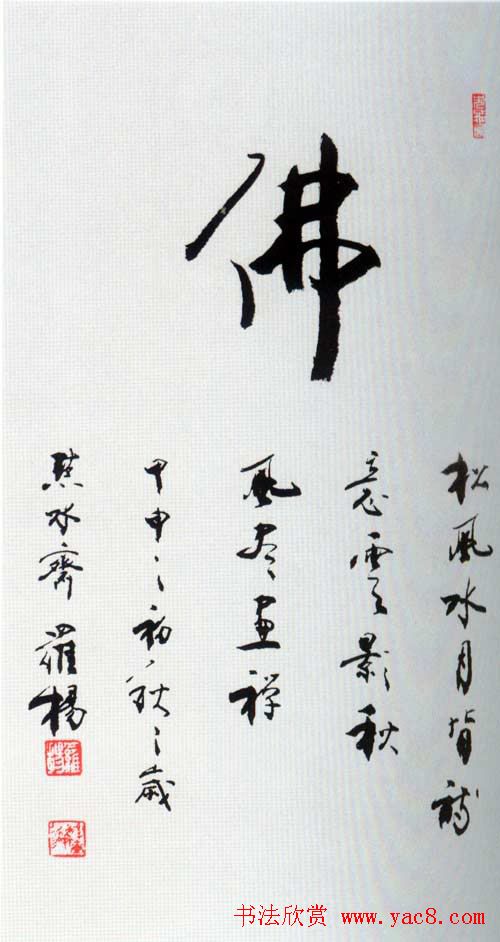 佛
松風水月皆詩
意雲影秋
風盡畫禪
甲申之初秋之歲
墨水齋 羅楊
书法欣赏 www.yac8.com